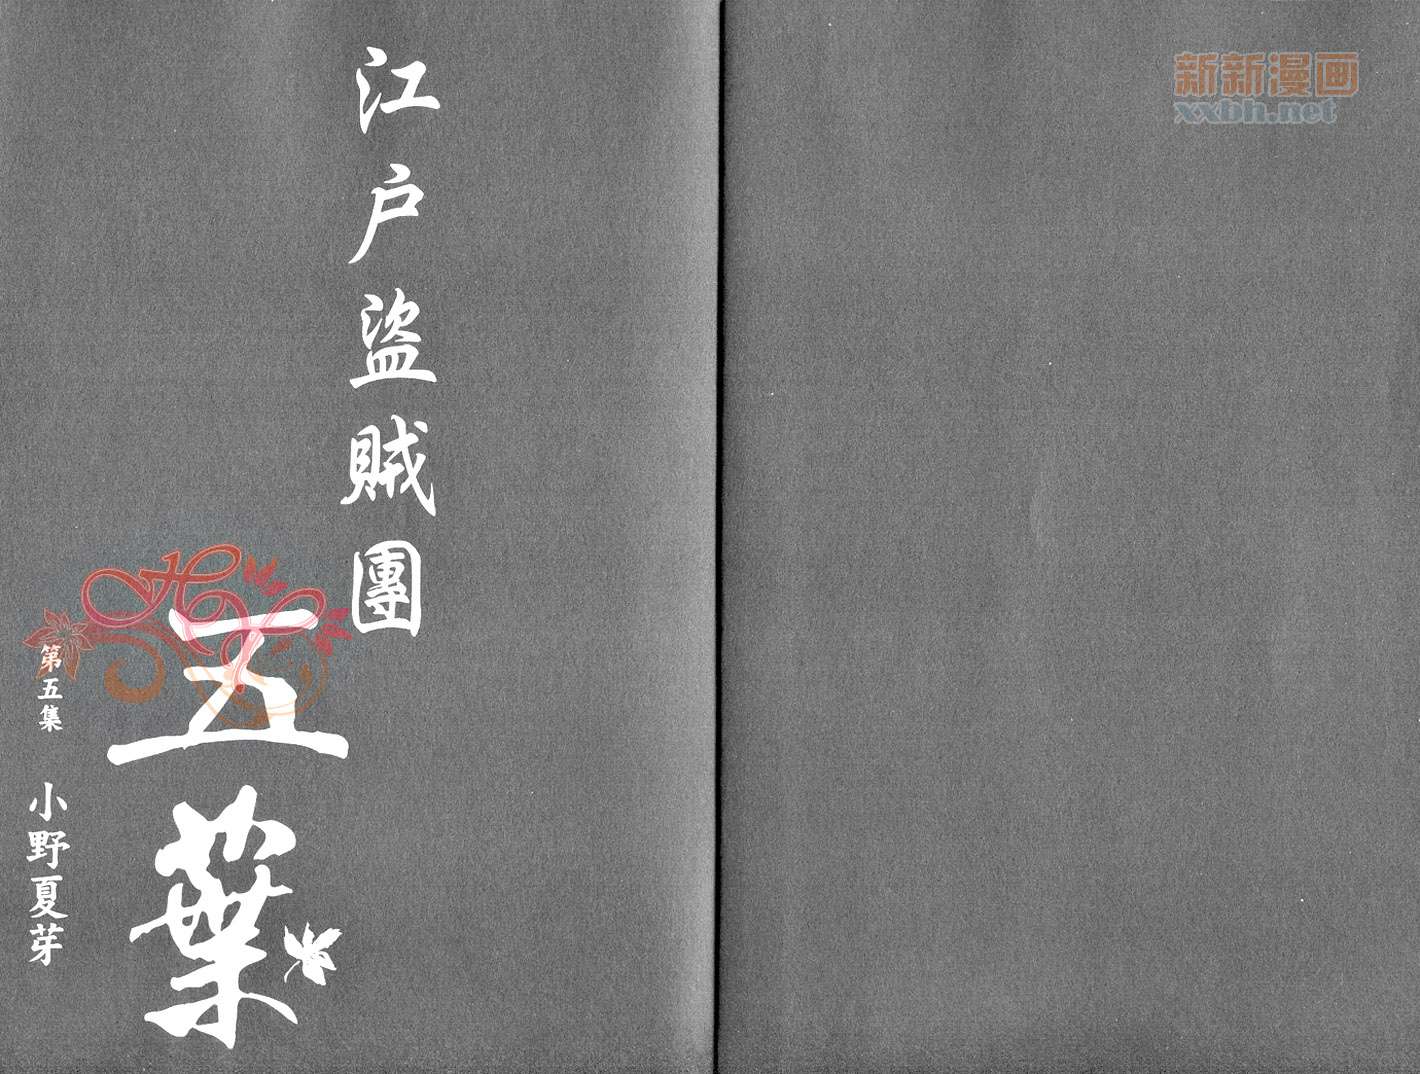 新新漫画
xxbh.net
江戸盜賊團
五葉
第五集
小野夏芽